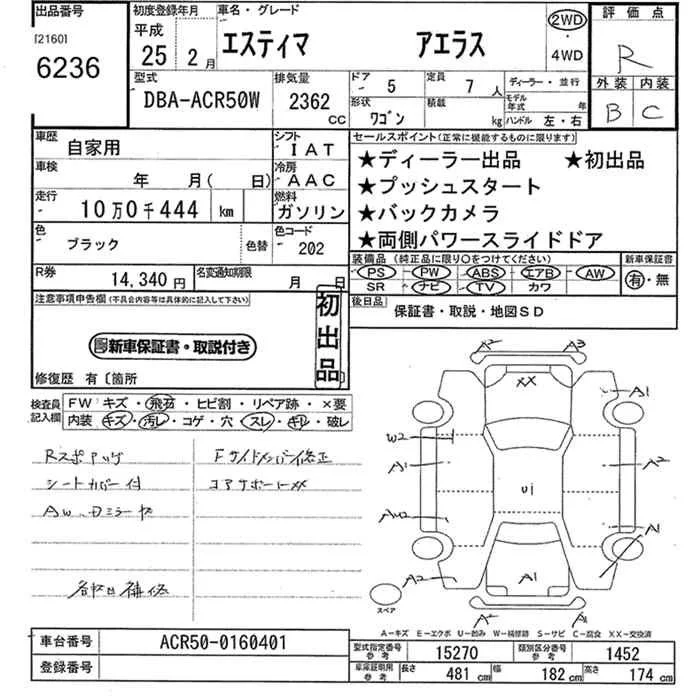 出品番号
[2160]
6236
初度登録年月
平成
25 2月
車名・グレード
エスティマ アエラス
2WD
・
4WD
評価点
R
外装 内装
B C
型式
DBA-ACR50W
排気量
2362
CC
ドア 5
定員 7人
形状 ワゴン
積載 kg
ディーラー・並行
モデル年式 年
ハンドル 左・右
車歴 自家用
シフト IAT
車検 年 月( 日)
冷房 AAC
走行 10万0千444 km
燃料 ガソリン
色 ブラック 色替
色コード 202
R券 14,340円
名変通知期限 月 日
セールスポイント(正常に機能するものに限ります)
★ディーラー出品 ★初出品
★プッシュスタート
★バックカメラ
★両側パワースライドドア
装備品(純正品に限り○をつけてください)
PS PW ABS エアB AW
SR ナビ TV カワ
新車保証書
有・無
後日品 保証書・取説・地図SD
注意事項申告欄(不具合内容等は具体的に記入して下さい)
新車保証書・取説付き
初出品
修復歴 有〔箇所 〕
検査員記入欄
FW キズ・飛石・ヒビ割・リペア跡・×要
内装 キズ・汚レ・コゲ・穴・スレ・キレ・破レ
シートカバー付
Fサイドメンバー修正
コアサポートXX
A2 A3
XX
A1
W2
A1
A2
U1
A1
A2
A1
A2 A1
スペア
A-キズ E-エクボ U-凹み W-補修跡 S-サビ C-腐食 XX-交換済
車台番号 ACR50-0160401
登録番号
型式指定番号 参考 15270
類別区分番号 参考 1452
車庫証明用 参考 長さ 481cm 幅 182cm 高さ 174cm